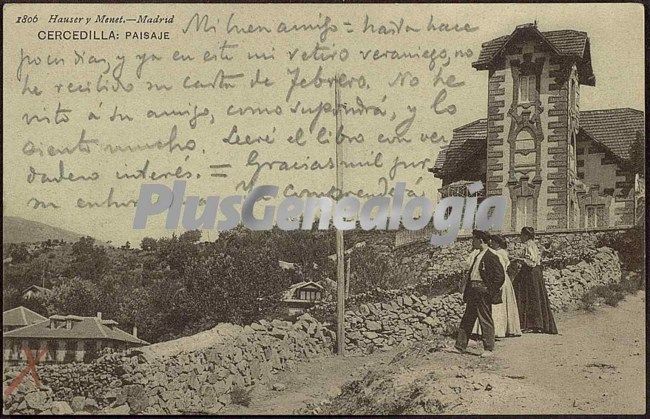 1806 Hauser y Menet.—Madrid
CERCEDILLA: PAISAJE
Mi buen amigo = hasta hace
pocos días, y ya en este mi retiro veraniego, no
he recibido su carta de Febrero. No he
visto á su amigo, como supondrá, y lo
siento mucho. Leeré el libro con ver
dadero interés. = Gracias mil por
su enhorabuena. Comprenderá
PlusGenealogía